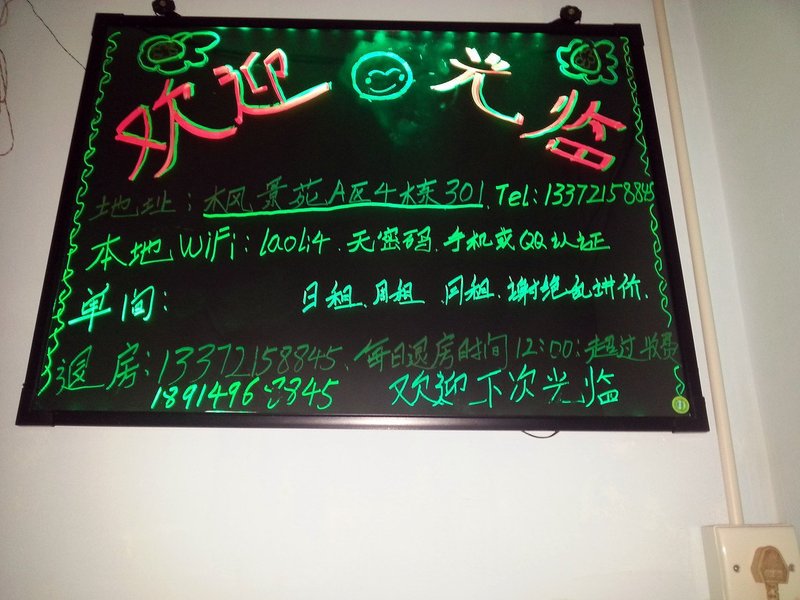 欢迎光临
地址：枫景苑A区4栋301. Tel:13372158845
本地WiFi: laoli4. 无密码. 手机或QQ认证
单间： 日租、周租 月租. 谢绝乱讲价.
退房：13372158845. 每日退房时间12:00:超过收费
欢迎下次光临